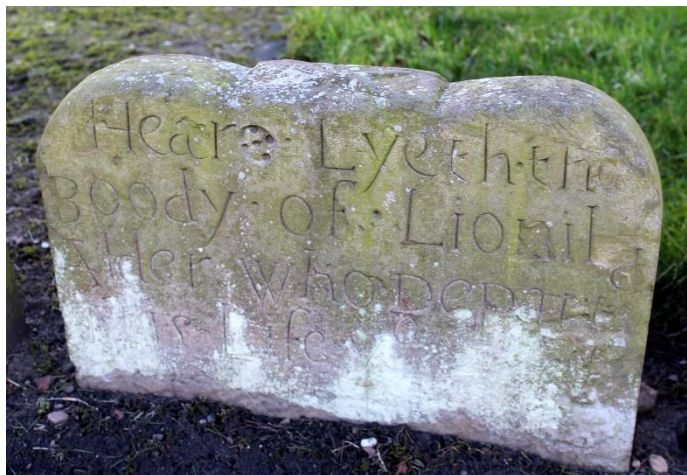 Heare Lyeth the
Boody of Lionil
who Depart
this Life